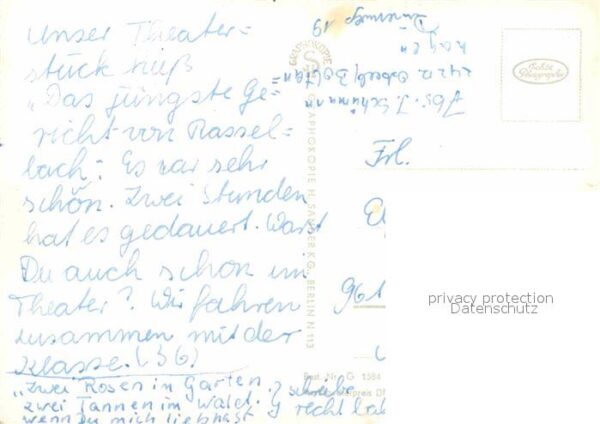 Unser Theater=
stück hieß
"Das jüngste Ge=
richt von Rassel=
bach". Es war sehr
schön. Zwei Stunden
hat es gedauert. Warst
Du auch schon im
Theater? Wir fahren
zusammen mit der
Klasse. (5G)
"Zwei Rosen in Garten.
zwei Tannen im Wald.
wenn Du mich liebhast
schreibe
recht bal
Abs. J. Schümann
Hagen
19
Frl.
96
GRAPHOKOPIE
GRAPHOKOPIE H. SANDER K.G., BERLIN N 113
Best.-Nr. G 1584
preis
Echte
Photographie
privacy protection
Datenschutz